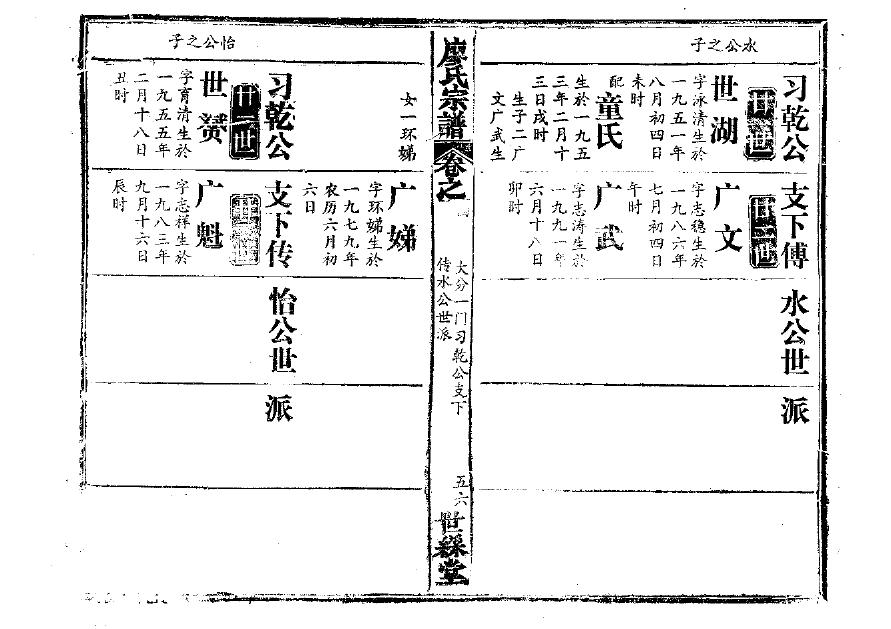 水公之子
习乾公支下傅水公世派
廿一世
世湖
字泳清生於
一九五一年
八月初四日
未时
配童氏
生於一九五
三年二月十
三日戌时
生子二广
文广武生
女一环娣
廿二世
广文
字志稳生於
一九八六年
七月初四日
午时
广武
字志涛生於
一九九一年
六月十八日
卯时
廖氏宗譜
卷之一
大分一门习乾公支下
传水公世派
五六
世綵堂
广娣
字环娣生於
一九七九年
农历六月初
六日
怡公之子
习乾公支下传怡公世派
廿一世
世赟
字育清生於
一九五五年
二月十八日
丑时
廿二世
广魁
字志祥生於
一九八三年
九月十六日
辰时